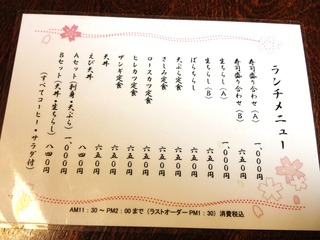 ランチメニュー
寿司盛り合わせ（A） 一,〇〇〇円
寿司盛り合わせ（B） 六五〇円
生ちらし（A） 一,〇〇〇円
生ちらし（B） 六五〇円
ばらちらし 六五〇円
天ぷら定食 六五〇円
さしみ定食 六五〇円
ロースカツ定食 六五〇円
ヒレカツ定食 六五〇円
ザンギ定食 六五〇円
天丼 六五〇円
えび天丼 八四〇円
Aセット（刺身・天ぷら） 一,〇〇〇円
Bセット（天丼・生ちらし） 八四〇円
（すべてコーヒー・サラダ付）
AM11：30 ～ PM2：00まで（ラストオーダーPM1：30）消費税込